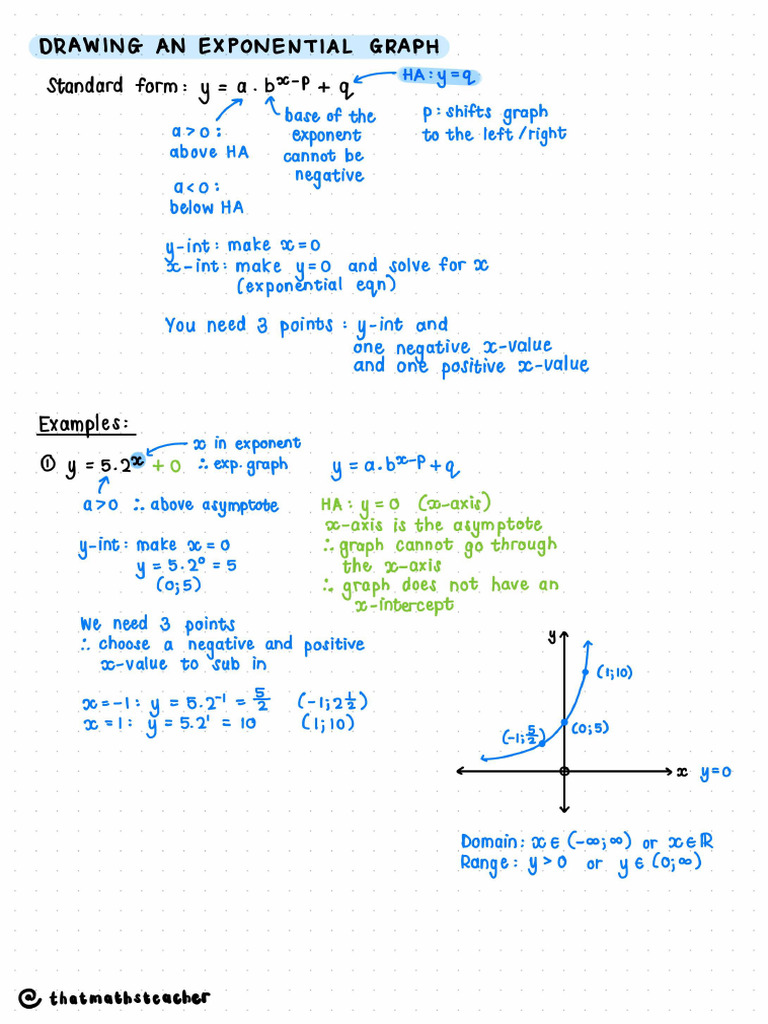 DRAWING AN EXPONENTIAL GRAPH
Standard form: y = a . b^(x-p) + q
HA: y = q
a > 0 :
above HA
a < 0 :
below HA
base of the
exponent
cannot be
negative
p: shifts graph
to the left / right
y-int: make x = 0
x-int: make y = 0 and solve for x
(exponential eqn)
You need 3 points : y-int and
one negative x-value
and one positive x-value
Examples:
① y = 5.2^x + 0
x in exponent
∴ exp. graph
y = a.b^(x-p) + q
a > 0 ∴ above asymptote
y-int: make x = 0
y = 5.2^0 = 5
(0;5)
HA: y = 0 (x-axis)
x-axis is the asymptote
∴ graph cannot go through
the x-axis
∴ graph does not have an
x-intercept
We need 3 points
∴ choose a negative and positive
x-value to sub in
x = -1: y = 5.2^-1 = 5/2 (-1; 2 1/2)
x = 1: y = 5.2^1 = 10 (1;10)
y
(1;10)
(0;5)
(-1; 5/2)
x y = 0
Domain: x ∈ (-∞;∞) or x ∈ ℝ
Range: y > 0 or y ∈ (0;∞)
@thatmathsteacher